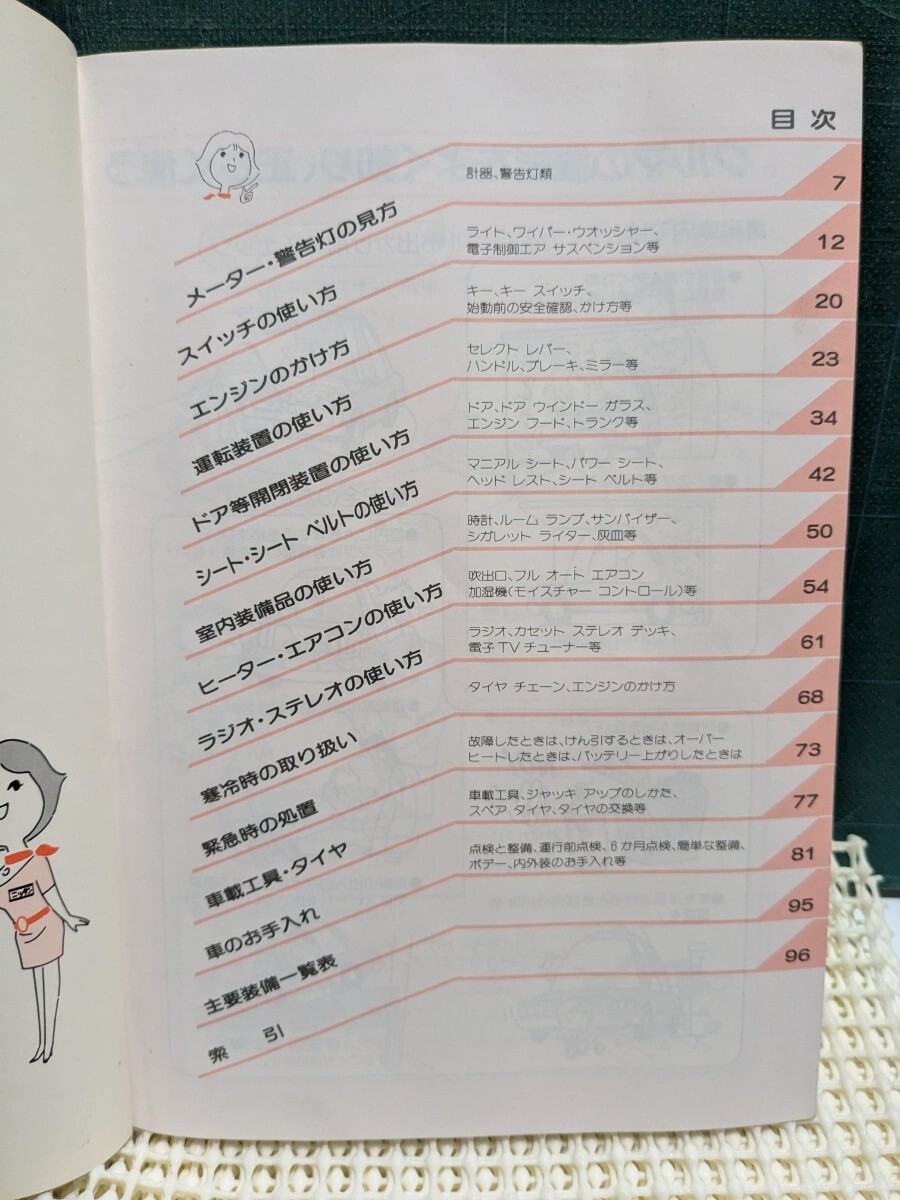 目次
メーター・警告灯の見方
計器、警告灯類
7
スイッチの使い方
ライト、ワイパー・ウオッシャー、
電子制御エア サスペンション等
12
エンジンのかけ方
キー、キー スイッチ、
始動前の安全確認、かけ方等
20
運転装置の使い方
セレクト レバー、
ハンドル、ブレーキ、ミラー等
23
ドア等開閉装置の使い方
ドア、ドア ウインドー ガラス、
エンジン フード、トランク等
34
シート・シート ベルトの使い方
マニアル シート、パワー シート、
ヘッド レスト、シート ベルト等
42
室内装備品の使い方
時計、ルーム ランプ、サンバイザー、
シガレット ライター、灰皿等
50
ヒーター・エアコンの使い方
吹出口、フル オート エアコン
加湿機(モイスチャー コントロール)等
54
ラジオ・ステレオの使い方
ラジオ、カセット ステレオ デッキ、
電子TVチューナー等
61
寒冷時の取り扱い
タイヤ チェーン、エンジンのかけ方
68
緊急時の処置
故障したときは、けん引するときは、オーバー
ヒートしたときは、バッテリー上がりしたときは
73
車載工具・タイヤ
車載工具、ジャッキ アップのしかた、
スペア タイヤ、タイヤの交換等
77
車のお手入れ
点検と整備、運行前点検、6か月点検、簡単な整備、
ボデー、内外装のお手入れ等
81
主要装備一覧表
95
索引
96